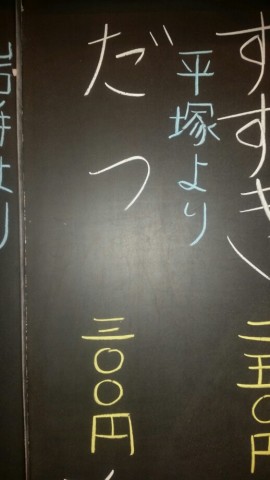 すすき
二五〇円
平塚より
だつ
三〇〇円
より